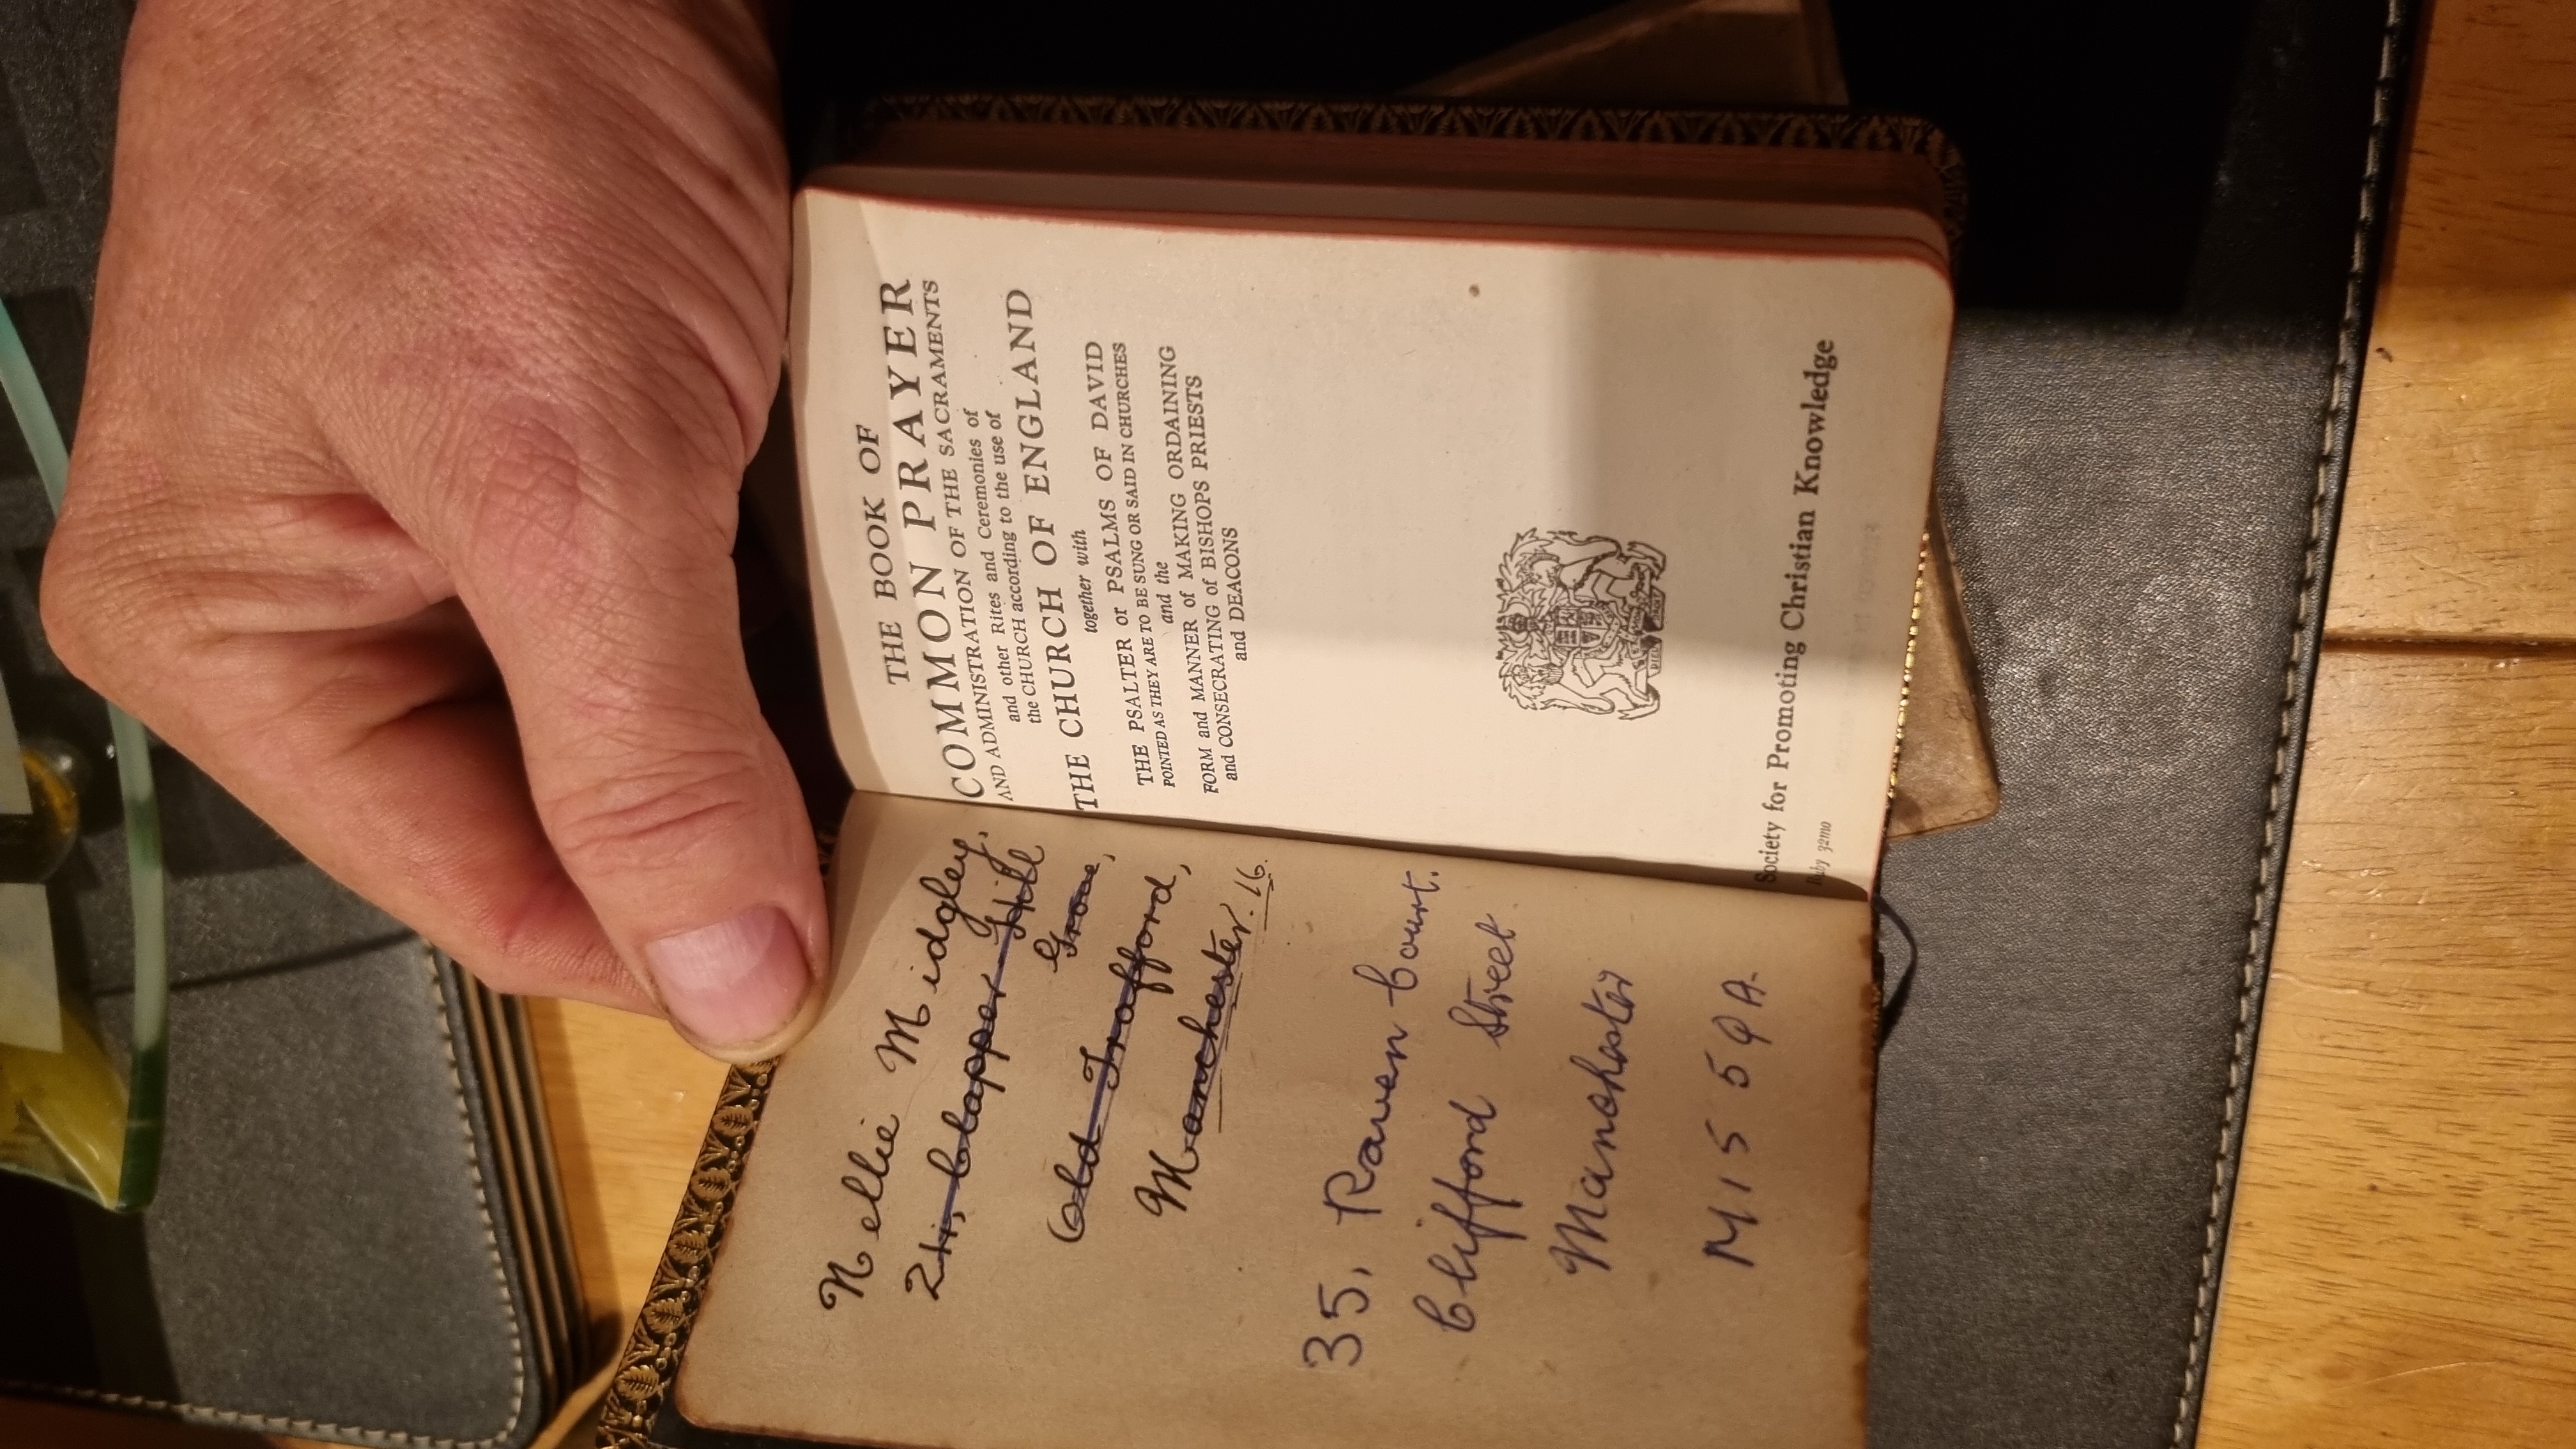 Nellie Midgley,
Clapper Hill
Grove,
Old Trafford,
Manchester. 16.
35, Raven Court.
Clifford Street
Manchester
M15 5QA.
THE BOOK OF
COMMON PRAYER
AND ADMINISTRATION OF THE SACRAMENTS
and other Rites and Ceremonies of
the CHURCH according to the use of
THE CHURCH OF ENGLAND
together with
THE PSALTER or PSALMS OF DAVID
POINTED AS THEY ARE TO BE SUNG OR SAID IN CHURCHES
and the
FORM and MANNER of MAKING ORDAINING
and CONSECRATING of BISHOPS PRIESTS
and DEACONS
Society for Promoting Christian Knowledge
Ruby 32mo